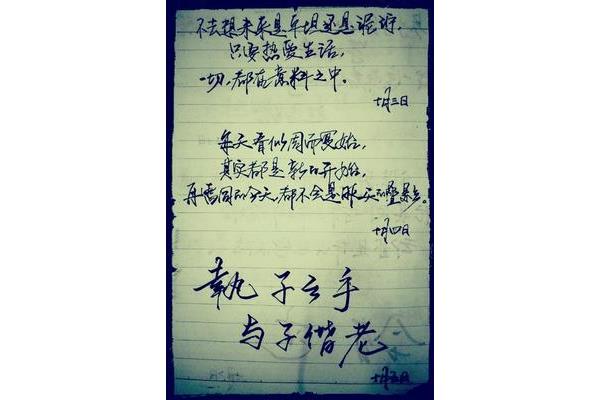 不去想未来是平坦还是泥泞，
只要热爱生活，
一切，都在意料之中。
十月三日
每天看似周而复始，
其实都是新的开始，
再雷同的今天，都不会是昨天的重叠。
十月四日
執子之手
与子偕老
十月五日